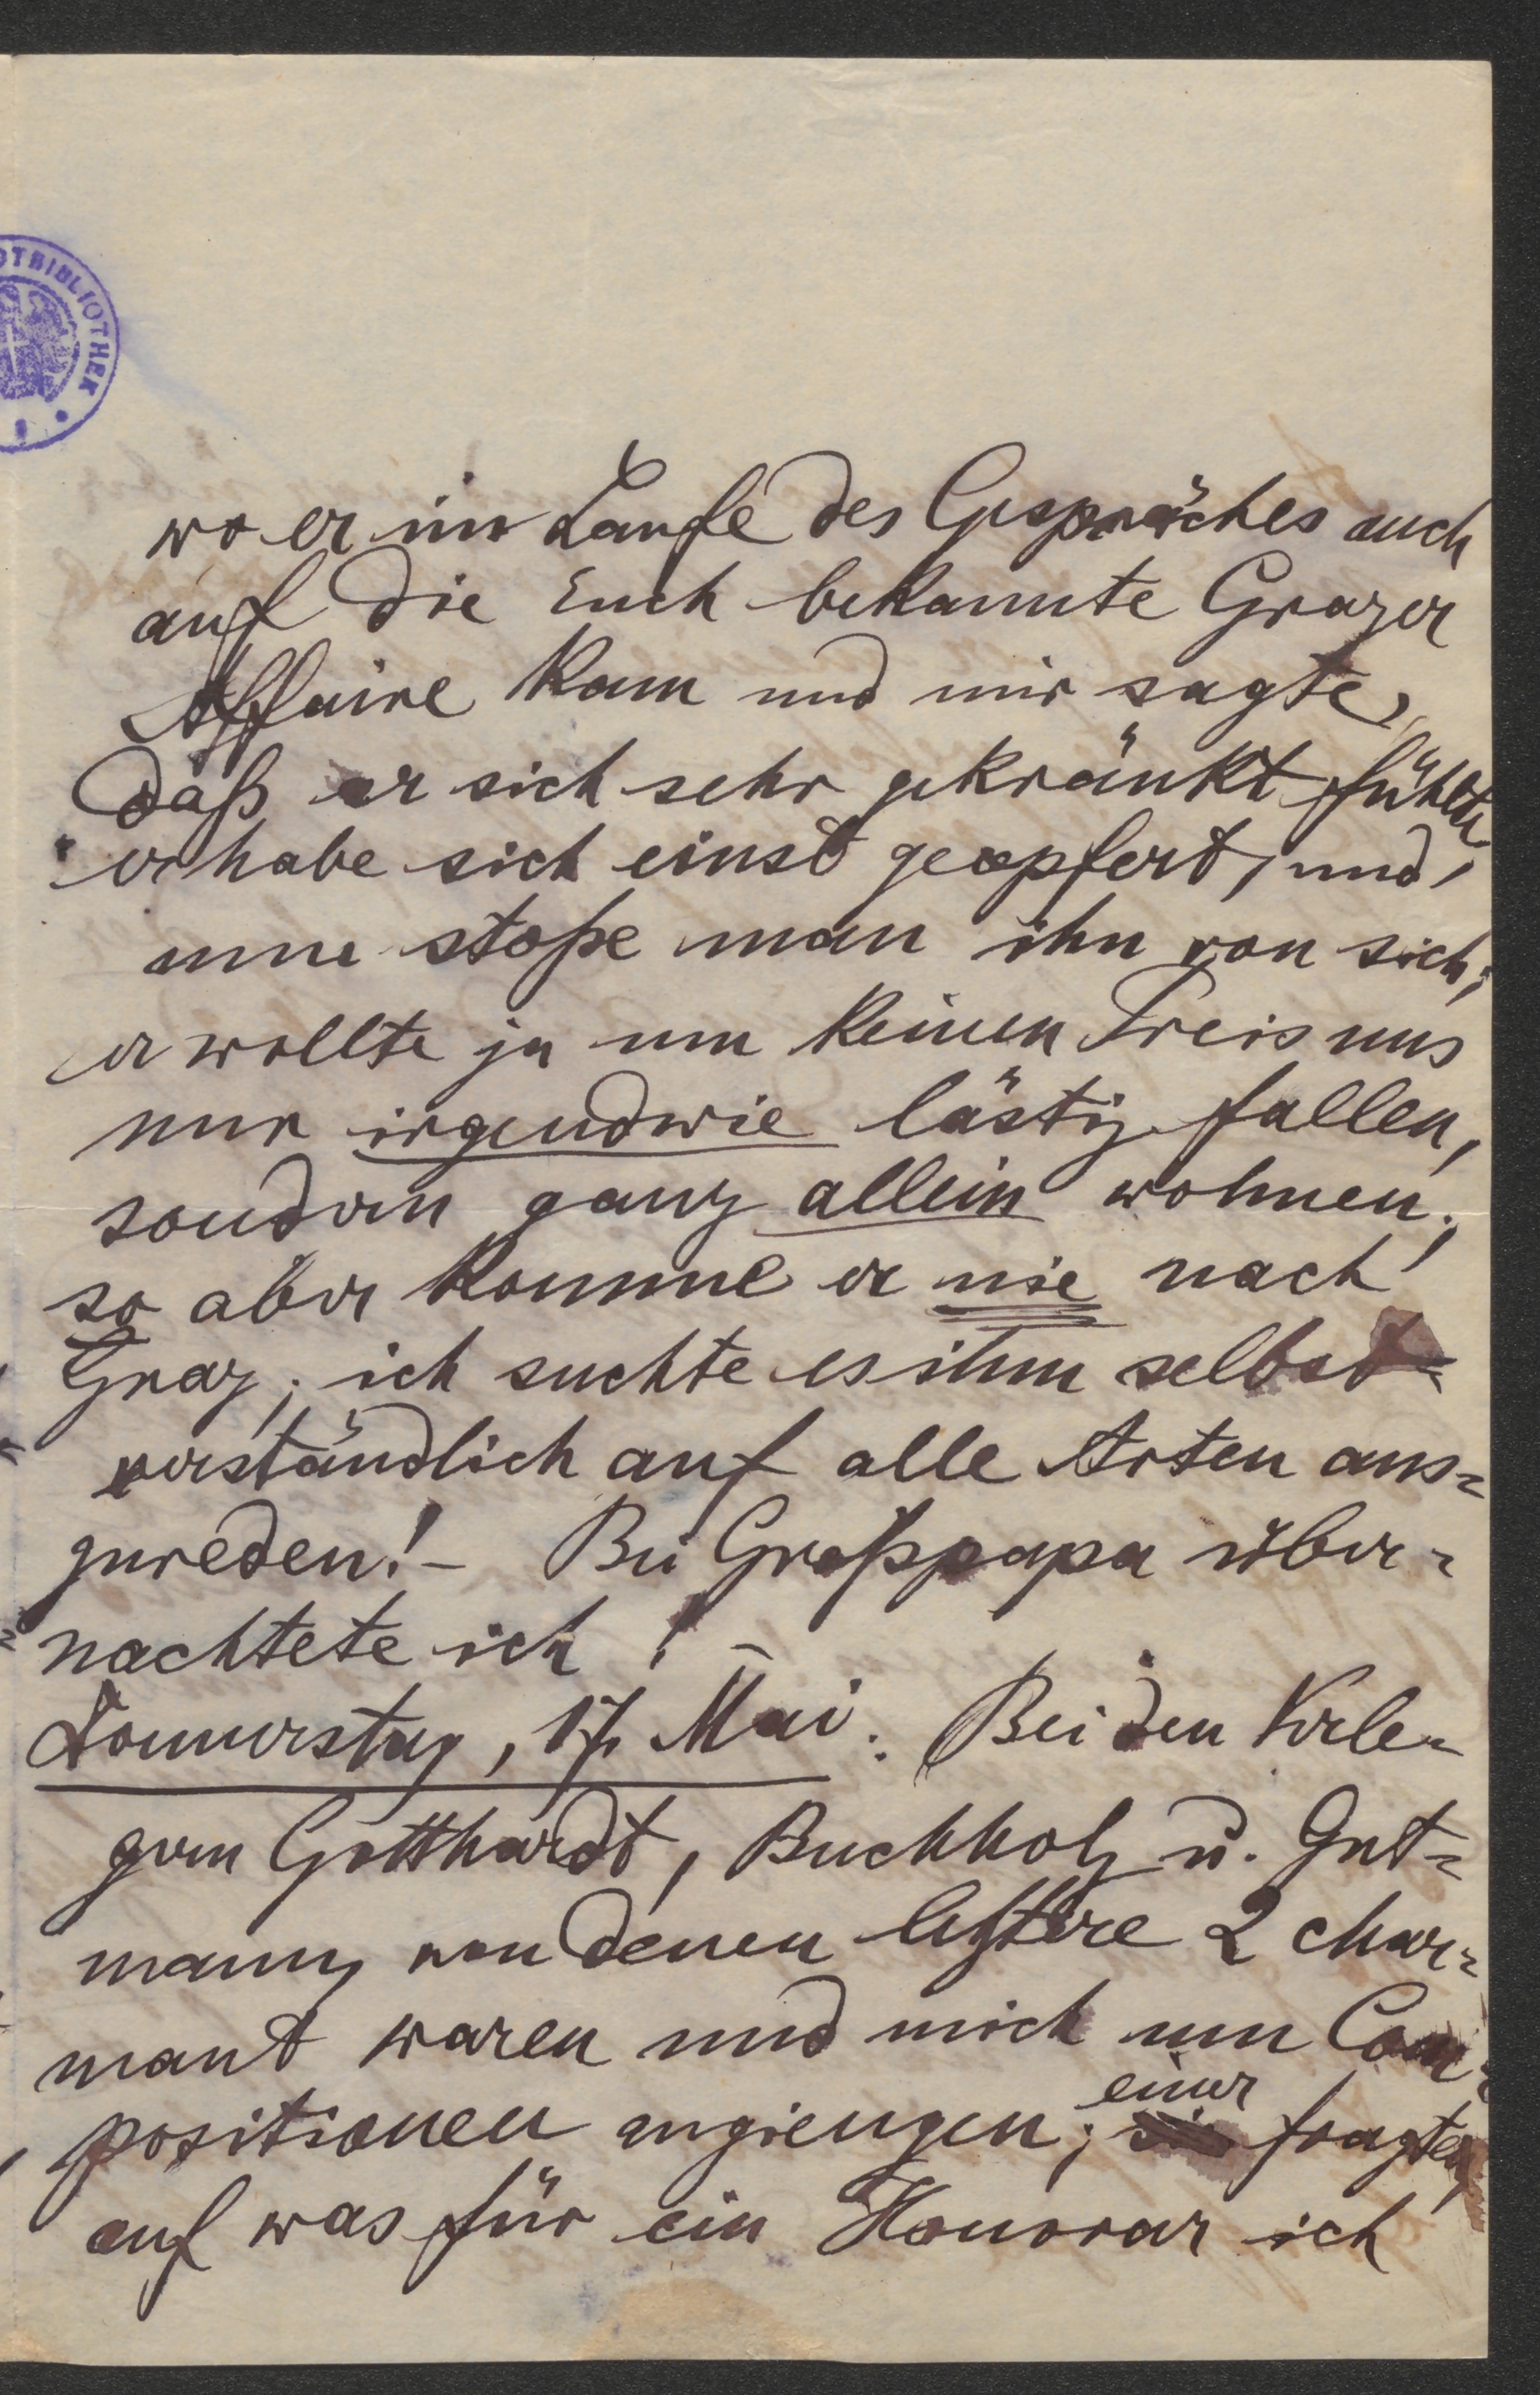 OTBIBLIOTHEK
wo er im Laufe des Gespräches auch
auf die Euch bekannte Grazer
Affaire kam und mir sagte,
daß er sich sehr gekränkt fühlte,
er habe sich einst geopfert, und
nun stoße man ihn von sich;
er wollte ja um keinen Preis uns
nur irgendwie lästig fallen,
sondern ganz allein wohnen;
so aber komme er nie nach
Graz; ich suchte es ihm selbst-
verständlich auf alle Arten aus-
zureden! – Bei Großpapa über-
nachtete ich! –
Donnerstag, 17. Mai: Bei den Verle-
gern Gotthardt, Buchholz u. Gut-
mann, von denen letztere 2 char-
mant waren und mich um Com-
positionen angiengen; einer fragte,
auf was für ein Honorar ich